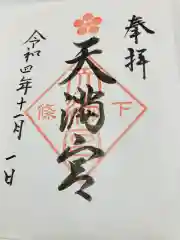 奉拝
天満宮
下
條
令和四年十一月一日